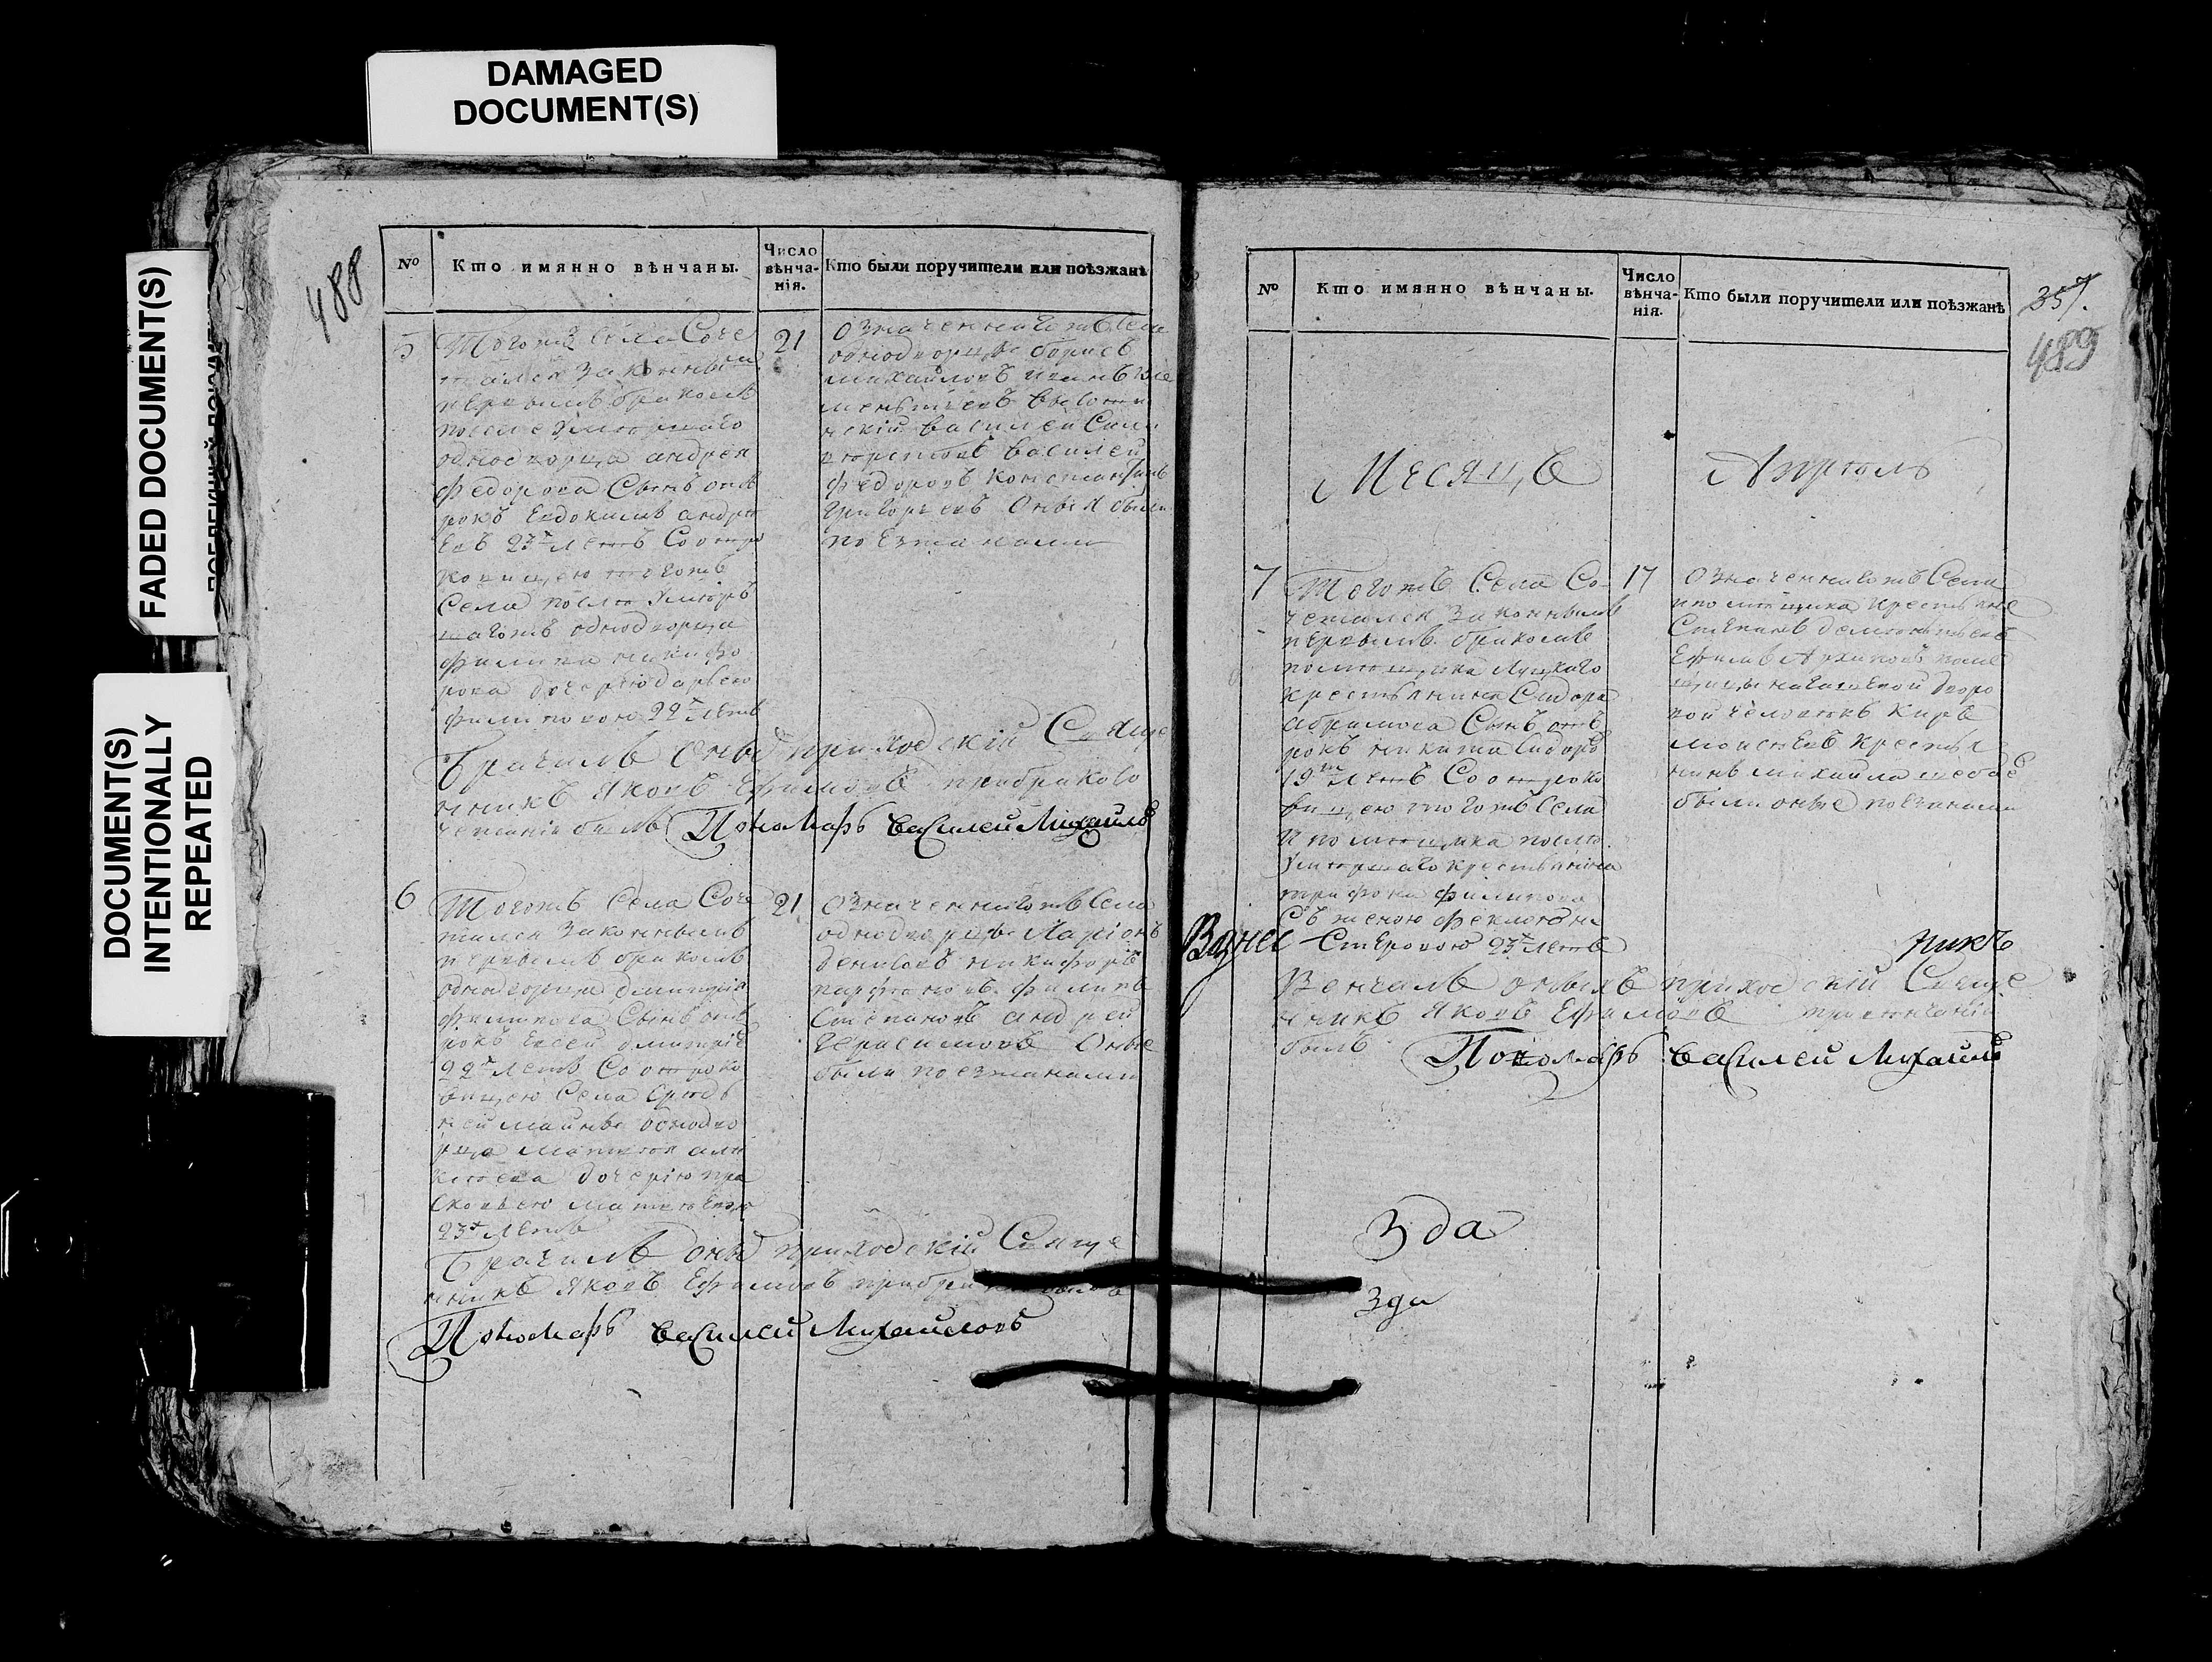 DAMAGED
DOCUMENT(S)
FADED DOCUMENT(S)
DOCUMENT(S)
INTENTIONALLY
REPEATED
488
№
Кто имянно вѣнчаны.
Число
вѣнча-
нія.
Кто были поручители или поѣзжанѣ
5
Тогожъ Села Соче
тался законнымъ
первымъ бракомъ
после умершаго
однодворца андрея
Федорова Сынъ отъ
рокъ Евдокимъ андре
евъ 23х летъ Со отро
ковицею тогожъ
Села после умерь
шагожъ однодворца
филипа никифо
рова дочерью дарьею
филиповою 22х летъ
21
Означеннагожъ Села
однодворцы борисъ
михайловъ иванъ
василей
василей
Федоровъ константинъ
Григорьевъ Оныя были
поезжанами
Врачилъ оные приходскій Свяще
нникъ Яковъ Ефимовъ прибракосо
четаніи былъ Пономарь василей Михайловъ
6
Тогожъ Села Соче
тался законнымъ
первымъ бракомъ
однодворца дмитрия
филипова Сынъ отъ
рокъ Евсей дмитріевъ
22х летъ Со отроко
вицею Села Средь
ней маинвы однодво
рца матвея але
ксеева дочерію пра
сковьею матвеевою
23х летъ
21
Означеннагожъ Села
однодворцы Ларіонъ
денисовъ никифоръ
парфеновъ филипъ
Степановъ андрей
Герасимовъ Оные
были поезжанами
Врачилъ оные приходскій Свяще
нникъ Яковъ Ефимовъ
Пономарь василей Михайловъ
№
Кто имянно вѣнчаны.
Число
вѣнча-
нія.
Кто были поручители или поѣзжанѣ
357.
489
Месяцъ
Апрель
7
Тогожъ Села Со-
чтался законнымъ
первымъ бракомъ
помещика Луцкаго
крестьянина Сидора
абрамова Сынъ отъ
рокъ никита Сидоръ
19ти летъ Со отроко
вицею тогожъ Села
и помещика после
умершаго крестьянина
трифона филипова
Съ женою феклою не
стеровою 23х летъ
17
Означеннагожъ Села
и помещика крестьяне
Степанъ дементьевъ
Ефимъ Архиповъ поме
щицы дворо
вой человекъ киръ
моисеевъ крестья
нинъ михайла
были оные поезжанами
Вознес
никъ
Венчалъ оныхъ приходскій Свяще
нникъ Яковъ Ефимовъ привенчаніи
былъ Пономарь василей Михайловъ
3 да
3 да